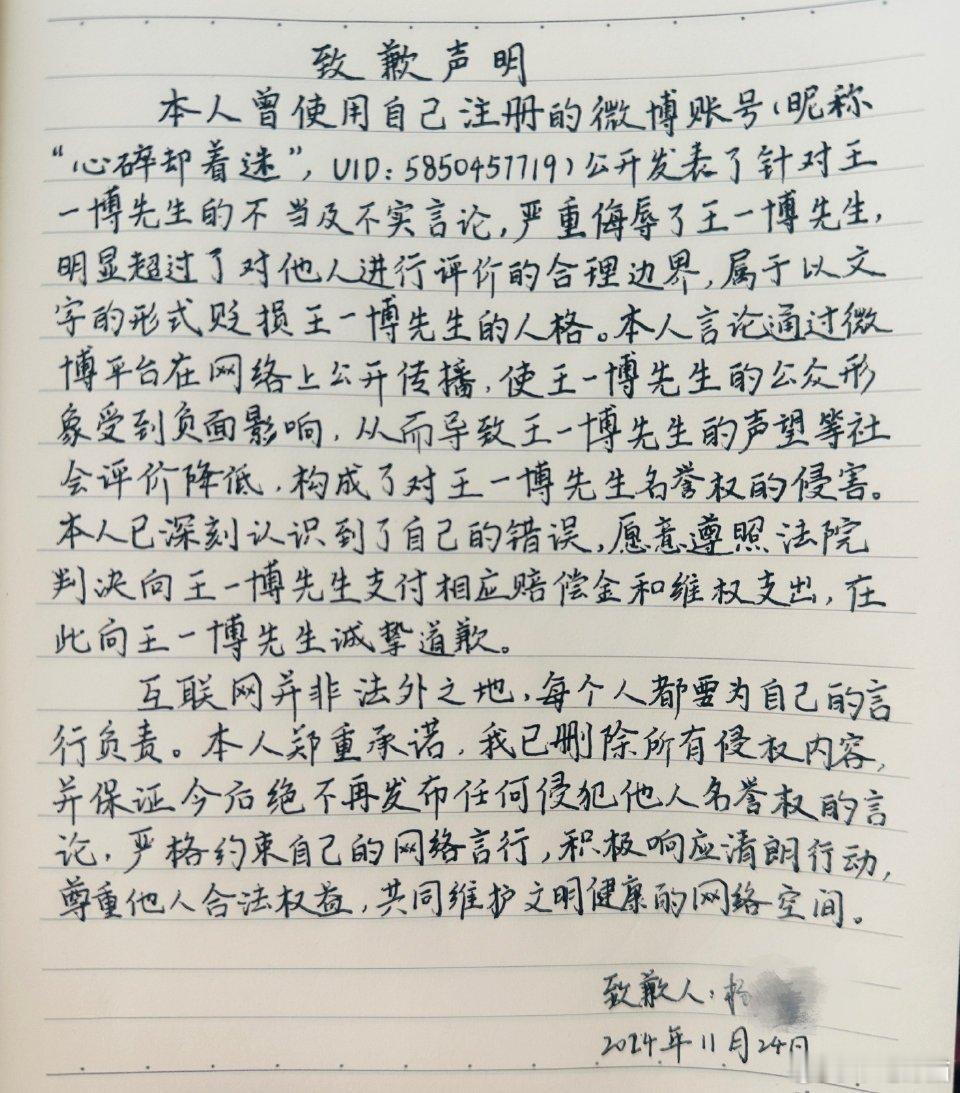 致歉声明
本人曾使用自己注册的微博账号（昵称
“心碎却着迷”，UID：5850457719）公开发表了针对王
一博先生的不当及不实言论，严重侮辱了王一博先生，
明显超过了对他人进行评价的合理边界，属于以文
字的形式贬损王一博先生的人格。本人言论通过微
博平台在网络上公开传播，使王一博先生的公众形
象受到负面影响，从而导致王一博先生的声望等社
会评价降低，构成了对王一博先生名誉权的侵害。
本人已深刻认识到了自己的错误，愿意遵照法院
判决向王一博先生支付相应赔偿金和维权支出，在
此向王一博先生诚挚道歉。
互联网并非法外之地，每个人都要为自己的言
行负责。本人郑重承诺，我已删除所有侵权内容，
并保证今后绝不再发布任何侵犯他人名誉权的言
论，严格约束自己的网络言行，积极响应清朗行动，
尊重他人合法权益，共同维护文明健康的网络空间。
致歉人：杨
2024年11月24日